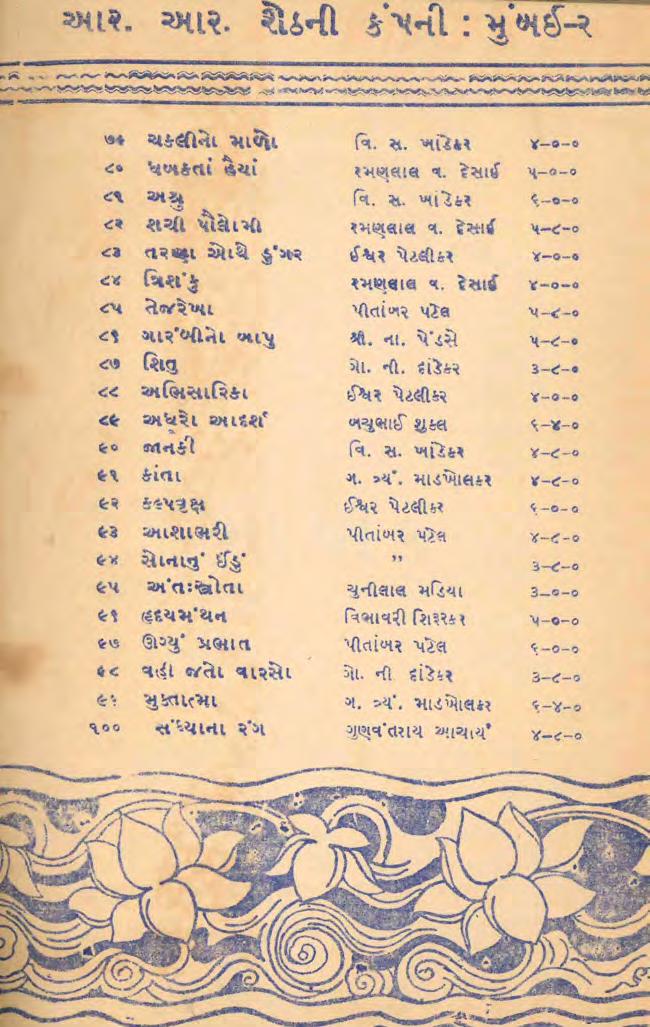 આર. આર. શેઠની કંપની : મુંબઈ-ર
૭૯ ચકલીનો માળો વિ. સ. ખાંડેકર ૪-૦-૦
૮૦ ધબકતાં હૈયાં રમણલાલ વ. દેસાઈ ૫-૦-૦
૮૧ અશ્રુ વિ. સ. ખાંડેકર ૬-૦-૦
૮૨ શચી પૌલોમી રમણલાલ વ. દેસાઈ ૫-૮-૦
૮૩ તરણા ઓથે ડુંગર ઈશ્વર પેટલીકર ૪-૦-૦
૮૪ ત્રિશંકુ રમણલાલ વ. દેસાઈ ૪-૦-૦
૮૫ તેજરેખા પીતાંબર પટેલ ૫-૮-૦
૮૬ ગારંબીનો બાપુ શ્રી. ના. પેંડસે ૫-૮-૦
૮૭ શિતુ ગો. ની. દાંડેકર ૩-૮-૦
૮૮ અભિસારિકા ઈશ્વર પેટલીકર ૪-૦-૦
૮૯ અધૂરો આદર્શ બચુભાઈ શુક્લ ૬-૪-૦
૯૦ જાનકી વિ. સ. ખાંડેકર ૪-૮-૦
૯૧ કાંતા ગ. ત્ર્યં. માડખોલકર ૪-૮-૦
૯૨ કલ્પવૃક્ષ ઈશ્વર પેટલીકર ૬-૦-૦
૯૩ આશાભરી પીતાંબર પટેલ ૪-૮-૦
૯૪ સોનાનું ઈંડું ,, ૩-૮-૦
૯૫ અંતઃસ્ત્રોતા ચુનીલાલ મડિયા ૩-૦-૦
૯૬ હૃદયમંથન વિભાવરી શિરૂરકર ૫-૦-૦
૯૭ ઊગ્યું પ્રભાત પીતાંબર પટેલ ૬-૦-૦
૯૮ વહી જતો વારસો ગો. ની દાંડેકર ૩-૮-૦
૯૯ મુક્તાત્મા ગ. ત્ર્યં. માડખોલકર ૬-૪-૦
૧૦૦ સંધ્યાના રંગ ગુણવંતરાય આચાર્ય ૪-૮-૦